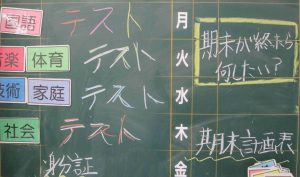 国語 テスト
音楽 体育 テスト
技術 家庭 テスト
社会 テスト
身分証
月
火
水
木
金
期末が終ったら
何したい?
期末計画表